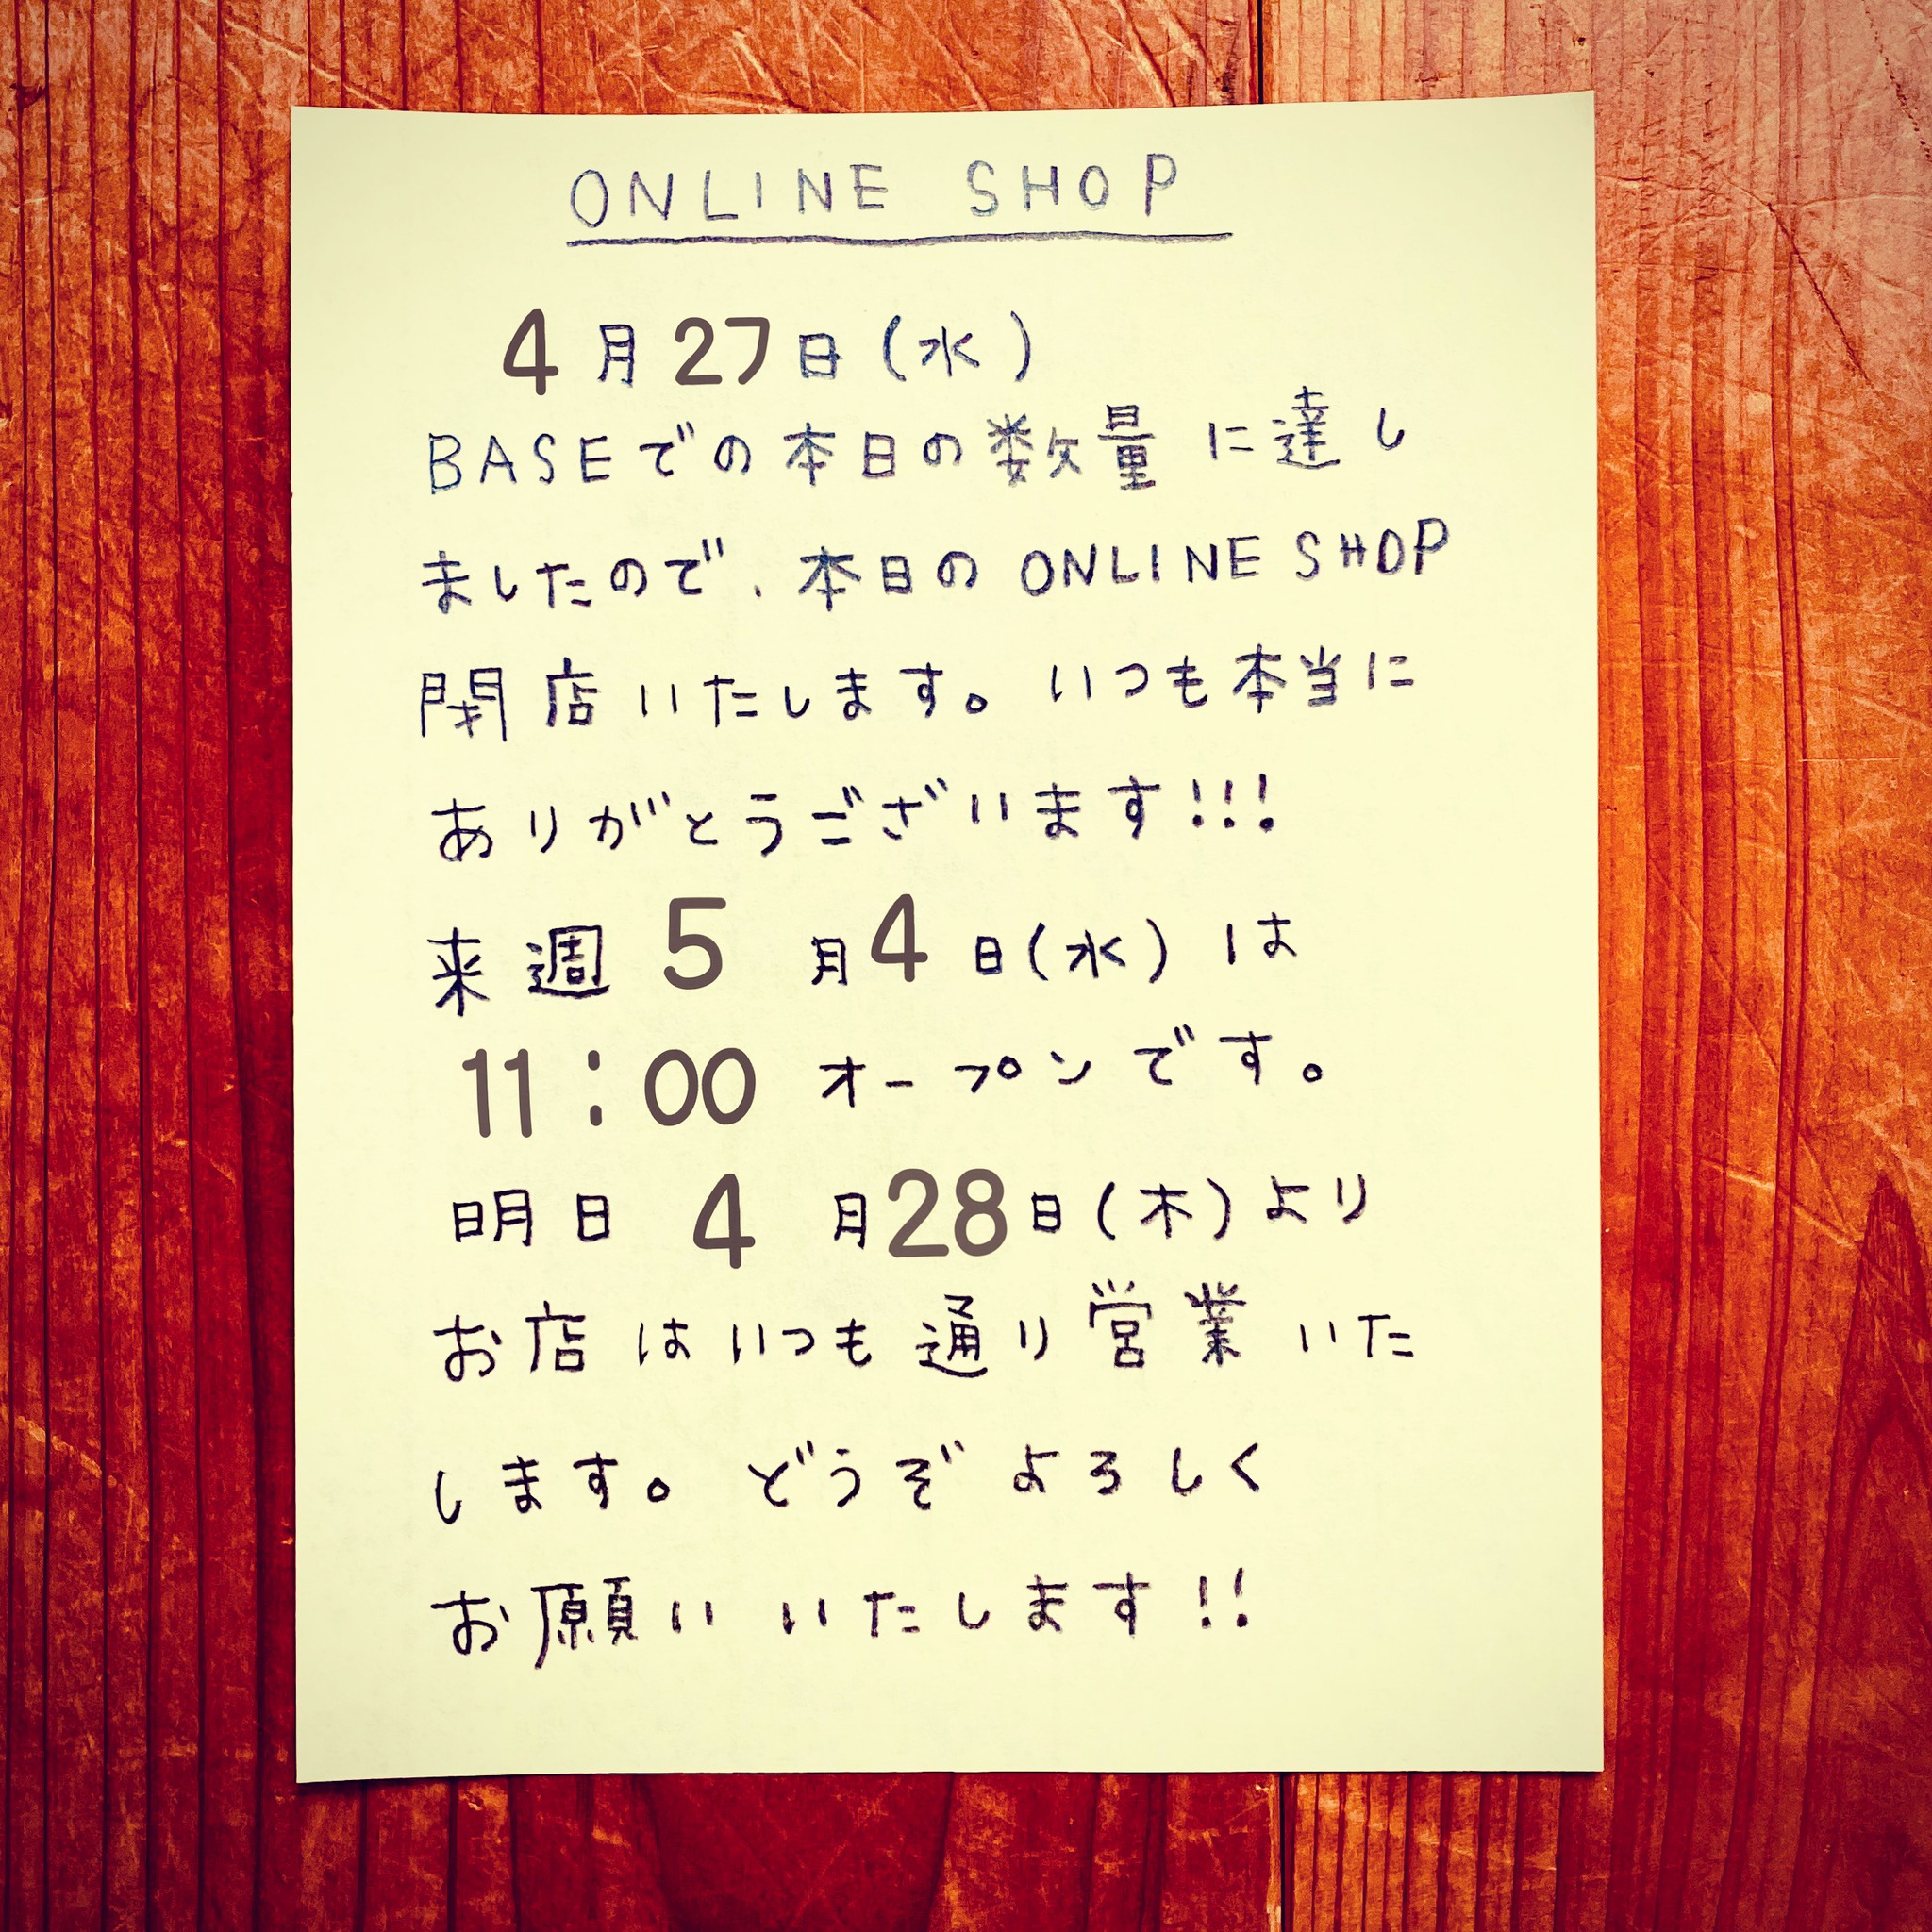 ONLINE SHOP
4月27日(水)
BASEでの本日の数量に達し
ましたので、本日のONLINE SHOP
閉店いたします。いつも本当に
ありがとうございます!!!
来週 5月4日(水)は
11:00 オープンです。
明日 4月28日(木)より
お店はいつも通り営業いた
します。どうぞよろしく
お願いいたします!!